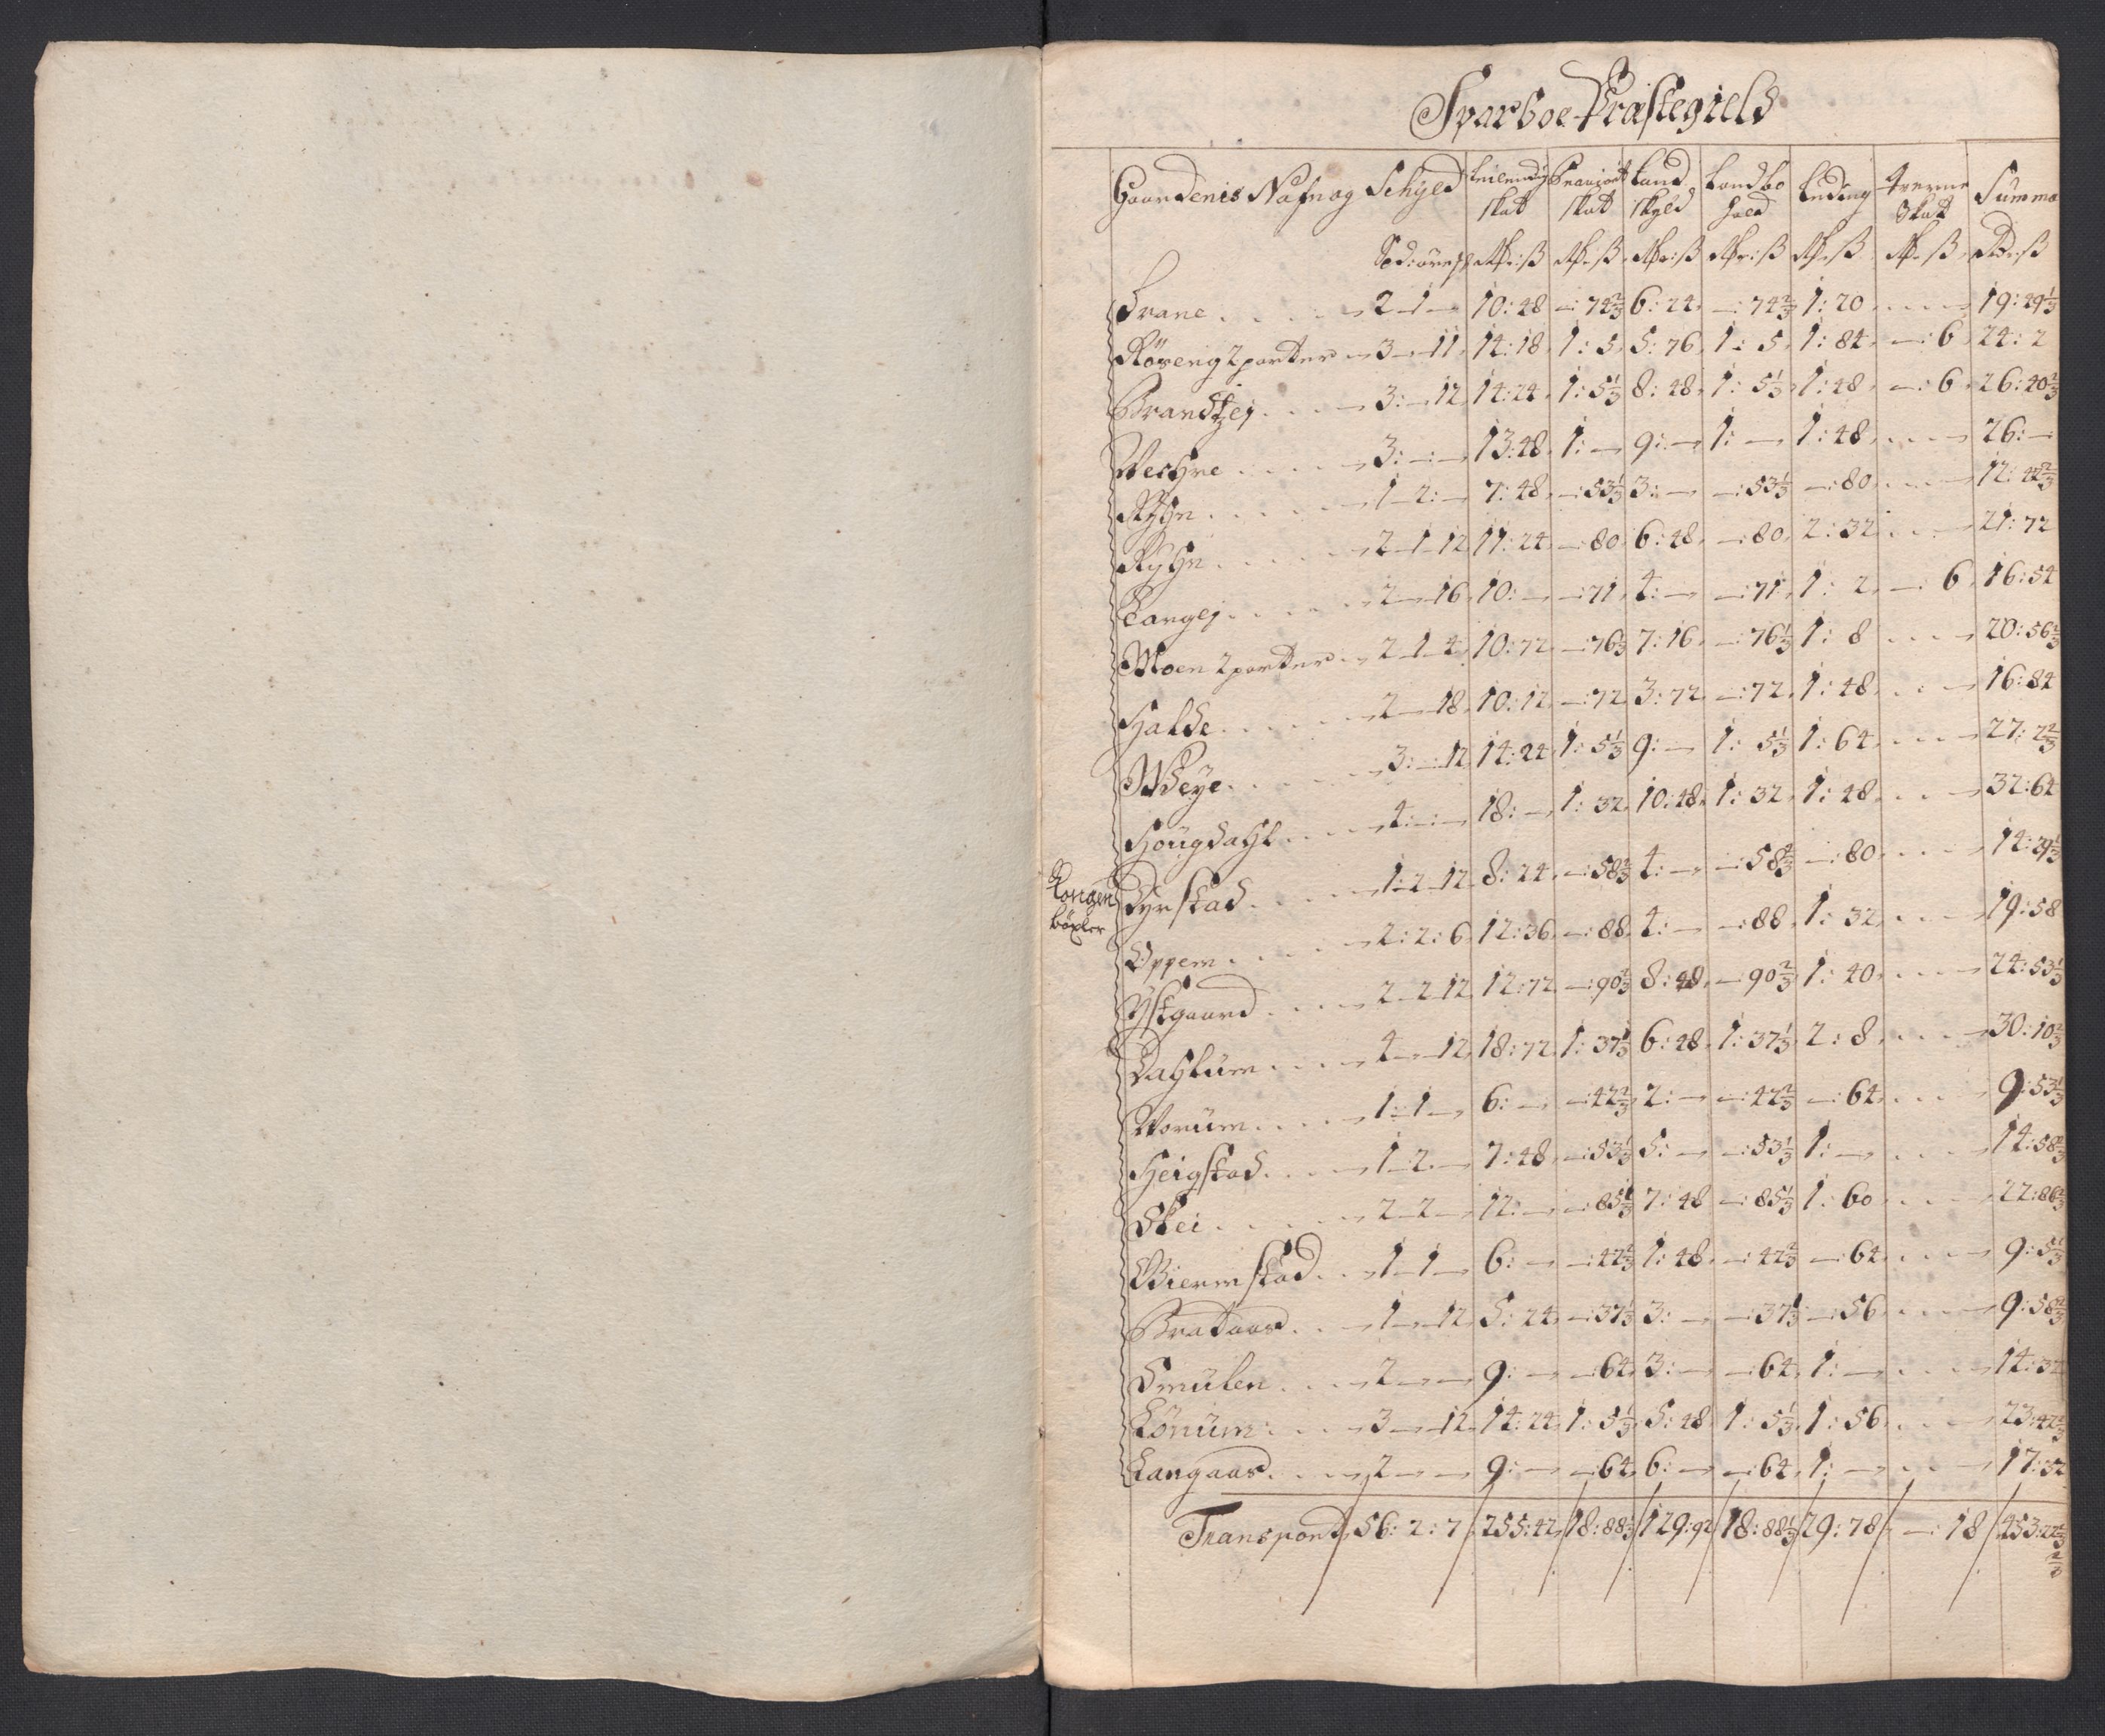 Sparboe Præstegield
Gaardenis Nafn og Schyld Leilendings skat Proviant skat Land skyld Landbo hold Leding Tverne Skat Summa
Spd: ører ℔ Rdr: ß Rdr: ß Rdr: ß Rdr: ß Rdr: ß Rdr: ß Rdr: ß
Trane . . . . 2 - 1 - 10: 48 -: 74 2/3 6: 24 -: 74 2/3 1: 20 . . . 19: 49 1/3
Röseng 2 parter - 3 - 11 14: 18 1: 5 5: 76 1: 5 1: 84 -: 6 24: 2
Brandtzej . . . 3: - 12 14: 24 1: 5 1/3 8: 48 1: 5 1/3 1: 48 -: 6 26: 40 2/3
Wechre . . . . 3: - : - 13: 48 1: - 9: - 1: - 1: 48 . . . 26: -
Rÿhn . . . . 1 - 2: - 7: 48 -: 53 1/3 3: - -: 53 1/3 -: 80 . . . 12: 42 2/3
Rÿhn . . . . 2 - 1 - 12 11: 24 -: 80 6: 48 -: 80 2: 32 . . . 21: 72
Tangej . . . . 2 - 16 10: - -: 71 4: - -: 71 1: 2 -: 6 16: 54
Moen 2 parter - 2 - 1 - 4 10: 72 -: 76 1/3 7: 16 -: 76 1/3 1: 8 . . . 20: 56 2/3
Halde . . . . 2 - 18 10: 12 -: 72 3: 72 -: 72 1: 48 . . . 16: 84
Wdeye . . . . 3: - 12 14: 24 1: 5 1/3 9: - 1: 5 1/3 1: 64 . . . 27: 2 2/3
Hougdahl . . . 4: - : - 18: - 1: 32 10: 48 1: 32 1: 48 . . . 32: 64
Kongen böxler
Dyrstad . . . 1: 2 - 12 8: 24 -: 58 2/3 4: - -: 58 2/3 -: 80 . . . 14: 29 1/3
Oppem . . . 2: 2: 6 12: 36 -: 88 4: - -: 88 1: 32 . . . 19: 58
Ystgaard . . . 2 - 2 - 12 12: 72 -: 90 2/3 8: 48 -: 90 2/3 1: 40 . . . 24: 53 1/3
Dahlum . . . 4 - 12 18: 72 1: 37 1/3 6: 48 1: 37 1/3 2: 8 . . . 30: 10 2/3
Worum . . . 1: 1 - 6: - -: 42 2/3 2: - -: 42 2/3 -: 64 . . . 9: 53 1/3
Heigstad . . . 1 - 2 - 7: 48 -: 53 1/3 5: - -: 53 1/3 1: - . . . 14: 58 2/3
Skei . . . . 2 - 2 - 12: - -: 85 1/3 7: 48 -: 85 1/3 1: 60 . . . 22: 86 2/3
Biermstad . . 1 - 1 - 6: - -: 42 2/3 1: 48 -: 42 2/3 -: 64 . . . 9: 5 1/3
Brataas . . 1 - 12 5: 24 -: 37 1/3 3: - -: 37 1/3 -: 56 . . . 9: 58 2/3
Smulen . . . 2 - - 9: - -: 64 3: - -: 64 1: - . . . 14: 32
Lönum . . . 3 - 12 14: 24 1: 5 1/3 5: 48 1: 5 1/3 1: 56 . . . 23: 42 2/3
Langaas . . . 2 - - 9: - -: 64 6: - -: 64 1: - . . . 17: 32
Transport 56: 2: 7 255: 42 18: 88 1/3 129: 92 18: 88 1/3 29: 78 -: 18 453: 22 2/3